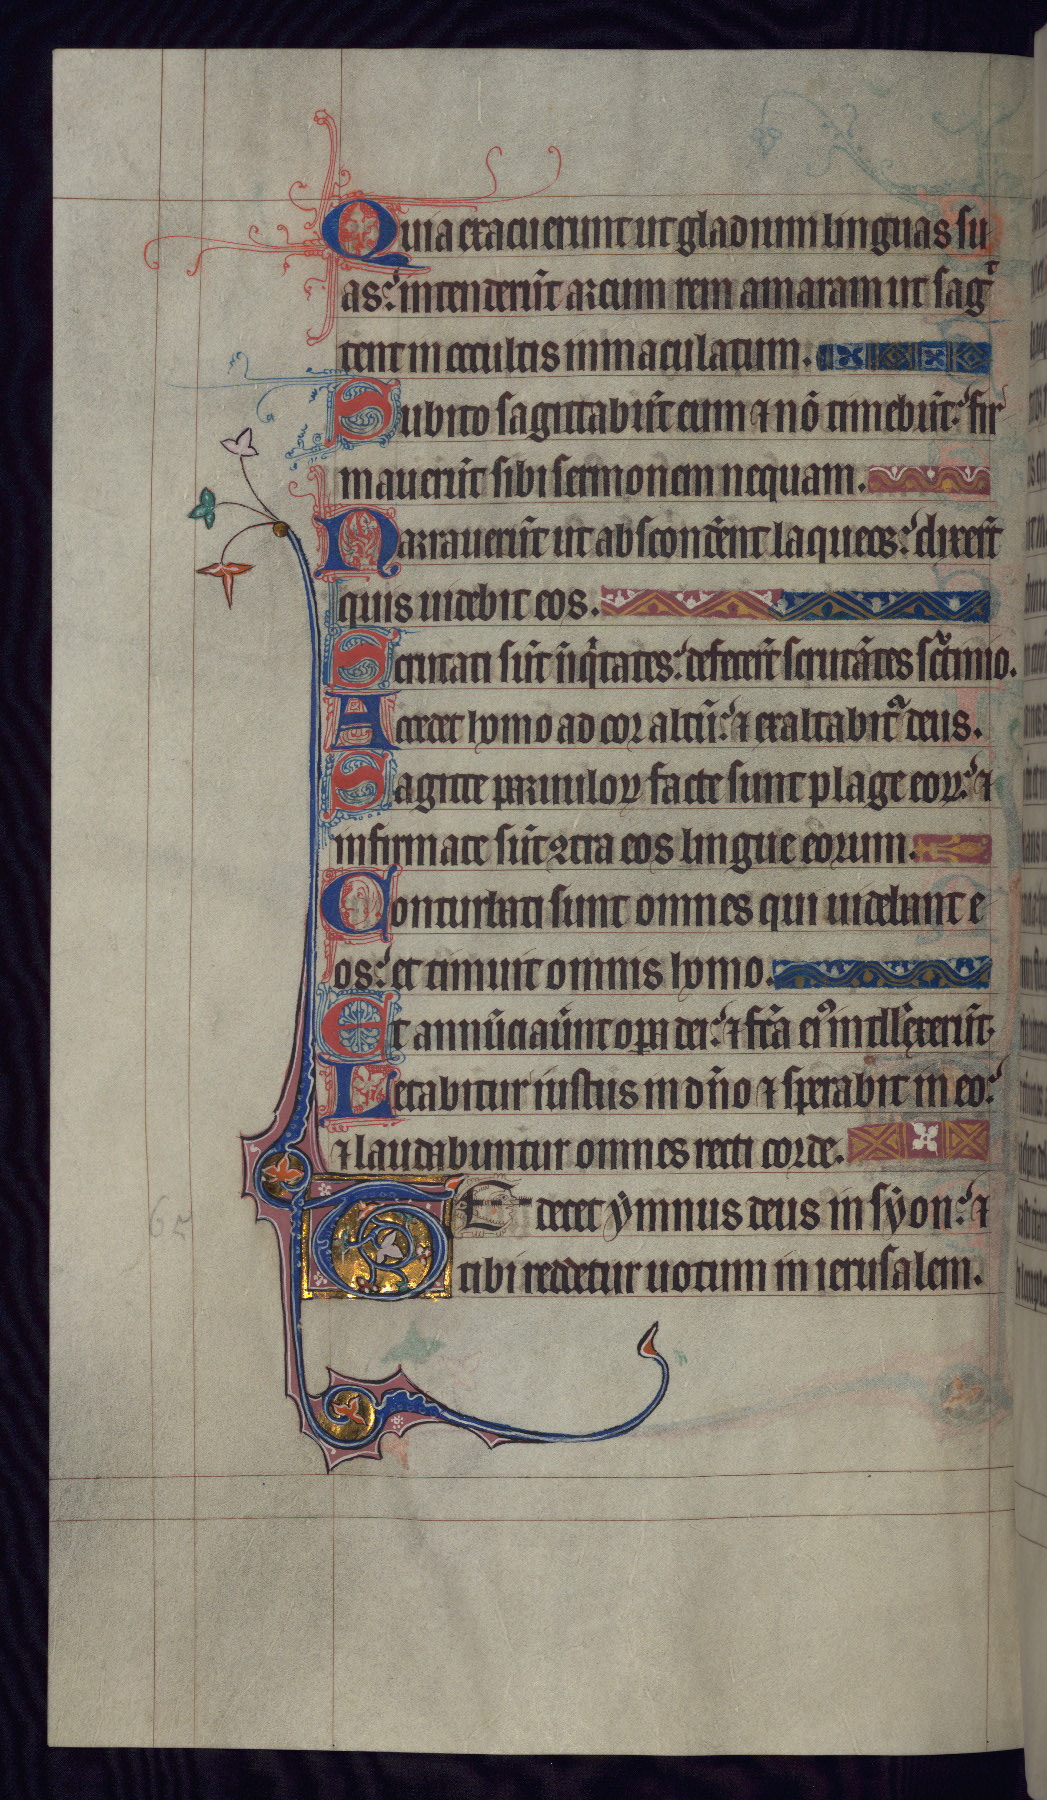 Quia exacuerunt ut gladium linguas su
as: intenderūt arcum rem amaram ut sagit
tent in occultis immaculatum.
Subito sagittabūt eum ⁊ nō timebūt: fir
mauerūt sibi sermonem nequam.
Narrauerūt ut absconderēnt laqueos: dixerūt
quis uidebit eos.
Scrutati sūt iniq̄tates: defecerūt scrutātes scrutinio.
Accedet homo ad cor altū: ⁊ exaltabitᵃ deus.
Sagitte paruuloꝝ facte sunt plage eoꝝ: ⁊
infirmate sūt ꝯtra eos lingue eorum.
Conturbati sunt omnes qui uidebant e
os: et timuit omnis homo.
Et annūciauer̄unt opa dei: ⁊ fc̄a eiꝰ intellexerūt.
Letabitur iustus in dn̄o ⁊ sperabit in eo:
⁊ laudabuntur omnes recti corde.
TE decet ymnus deus in syon: ⁊
tibi reddetur uotum in ierusalem.
65